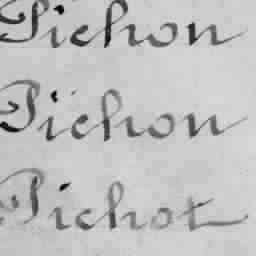 Pichon
Pichon
Pichot